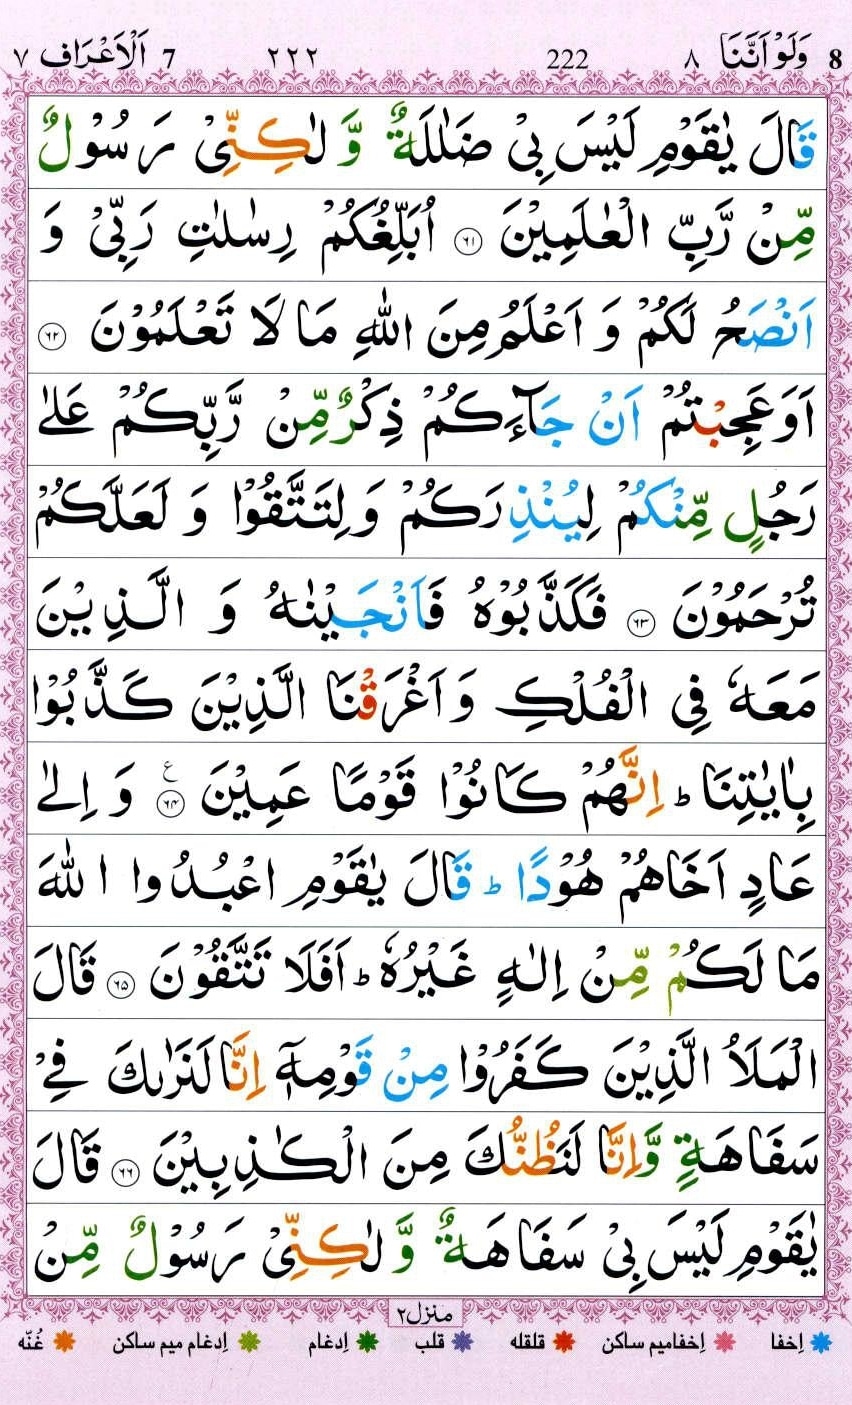 8 وَلَوْ اَنَّنَا ٨ 222 ٢٢٢ 7 اَلْاَعْرَاف ٧
قَالَ يٰقَوْمِ لَيْسَ بِىْ ضَلٰلَةٌ وَّ لٰكِنِّىْ رَسُوْلٌ
مِّنْ رَّبِّ الْعٰلَمِيْنَ ﴿٦١﴾ اُبَلِّغُكُمْ رِسٰلٰتِ رَبِّىْ وَ
اَنْصَحُ لَكُمْ وَ اَعْلَمُ مِنَ اللّٰهِ مَا لَا تَعْلَمُوْنَ ﴿٦٢﴾
اَوَعَجِبْتُمْ اَنْ جَآءَكُمْ ذِكْرٌ مِّنْ رَّبِّكُمْ عَلٰى
رَجُلٍ مِّنْكُمْ لِيُنْذِرَكُمْ وَ لِتَتَّقُوْا وَ لَعَلَّكُمْ
تُرْحَمُوْنَ ﴿٦٣﴾ فَكَذَّبُوْهُ فَاَنْجَيْنٰهُ وَ الَّذِيْنَ
مَعَهٗ فِى الْفُلْكِ وَ اَغْرَقْنَا الَّذِيْنَ كَذَّبُوْا
بِاٰيٰتِنَا ؕ اِنَّهُمْ كَانُوْا قَوْمًا عَمِيْنَ ﴿٦٤﴾ ع وَ اِلٰى
عَادٍ اَخَاهُمْ هُوْدًا ؕ قَالَ يٰقَوْمِ اعْبُدُوا اللّٰهَ
مَا لَكُمْ مِّنْ اِلٰهٍ غَيْرُهٗ ؕ اَفَلَا تَتَّقُوْنَ ﴿٦٥﴾ قَالَ
الْمَلَاُ الَّذِيْنَ كَفَرُوْا مِنْ قَوْمِهٖۤ اِنَّا لَنَرٰىكَ فِىْ
سَفَاهَةٍ وَّ اِنَّا لَنَظُنُّكَ مِنَ الْكٰذِبِيْنَ ﴿٦٦﴾ قَالَ
يٰقَوْمِ لَيْسَ بِىْ سَفَاهَةٌ وَّ لٰكِنِّىْ رَسُوْلٌ مِّنْ
منزل ٢
اِخفا اِخفامیم ساکن قلقله قلب اِدغام اِدغام میم ساکن غُنّه